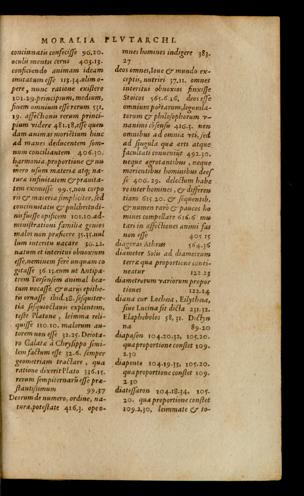 MORALIA PLVTARCHI.
concinnatis confecisse 96.20.
oculū mentis cerni 403.13.
conficiendo animam ideam
imitatum esse 113.34. alimo-
pere, nunc ratione existere
101.29. principium, medium,
finem omnium esse rerum 531.
19. asse nec horum rerum princi-
pium videre 481.18, asse quen
dam animæ moritium hinc
ad manes deducentem som-
num conciliantem 406.30.
harmonia, proportione & nu
mero usum materia atq; na-
tura infinitatem & prauita-
tem exemisse 99.1, non corpo
ris & materia simpliciter, sed
concinnitatis & pulchritudi-
nis fuisse opificem 101.10. ad-
ministrationi familia genios
malos non præficere 55.35. nul
lum interitu uacare 30.22.
natum et interitui obnoxium
esse, neminem ferè unquam co
gitasse 56.13. eum ut Antipa-
trem Tarsensem animal bea-
tum uocasse, & uarijs epithe-
tis ornasse ibid. 18. sesquiter-
tia sesquioctaui explentem,
teste Platone, leimma reli-
quisse 110.10. malorum au-
thorem non esse 32.25. Deiota-
ro Galatæ à Chrysippo simi-
lem factum esse 32.6. semper
geometriam tractare, qua
ratione dixerit Plato 336.15.
rerum sempiternarū esse præ-
stantissimum 99.37
Deorum de numero, ordine, na-
tura, potestate 416.3. opeo-
mnes homines indigere 383.
27
deos omnes, Ioue & mundo ex-
ceptis, nutriri 37.11. omnes
interitui obnoxios finxisse
Stoicos 565.6.26, deos esse
omnium poëtarum, legumla-
torum & philosophorum v-
nanimi cōsensu 416.5. non
omnibus ad omnia vti, sed
ad singula qua artis atque
facultatis conuenit 492.30.
neque agrotantibus, neque
morientibus hominibus deos
se 400.29. delectum habe-
re inter homines, & differen
tiam 615.20. & sequentib.
& numen rarò & paucos ho
mines compellare 616.6 mu
tari in affectiones animi fas
non esse 405.15
diagoras Atheus 564.36
diameter Solis ad diametrum
terræ qua proportione conti-
neatur 122.23
diametrorum variorum propor
tiones 122.24
diana cur Lochea, Eilythna,
siue Lucina sit dicta 231.32.
Elaphebolos 58.31. Dictyn
na 89.20
diapason 104.20.32, 105.20.
qua proportione constet 109.
2.30
diapente 104.19.33, 105.20.
qua proportione constet 109.
2.30
diatessaron 104.18.34, 105.
20. qua proportione constet
109.2.30, leimmate & to-